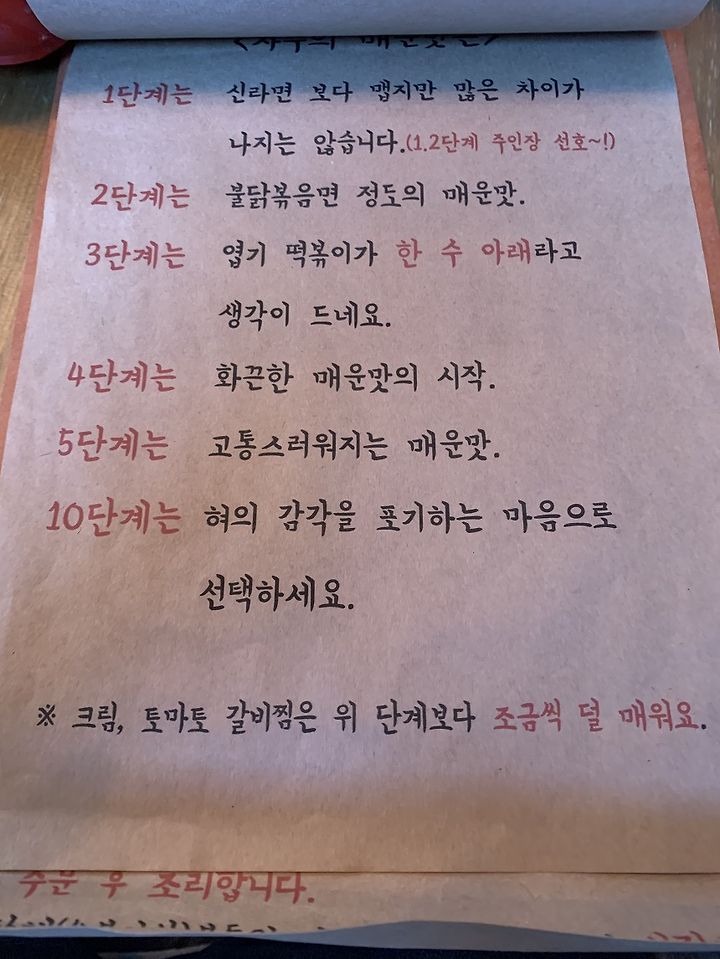 매운맛은>
1단계는 신라면 보다 맵지만 많은 차이가
나지는 않습니다.(1.2단계 주인장 선호~!)
2단계는 불닭볶음면 정도의 매운맛.
3단계는 엽기 떡볶이가 한 수 아래라고
생각이 드네요.
4단계는 화끈한 매운맛의 시작.
5단계는 고통스러워지는 매운맛.
10단계는 혀의 감각을 포기하는 마음으로
선택하세요.
※ 크림, 토마토 갈비찜은 위 단계보다 조금씩 덜 매워요.
주문 후 조리합니다.